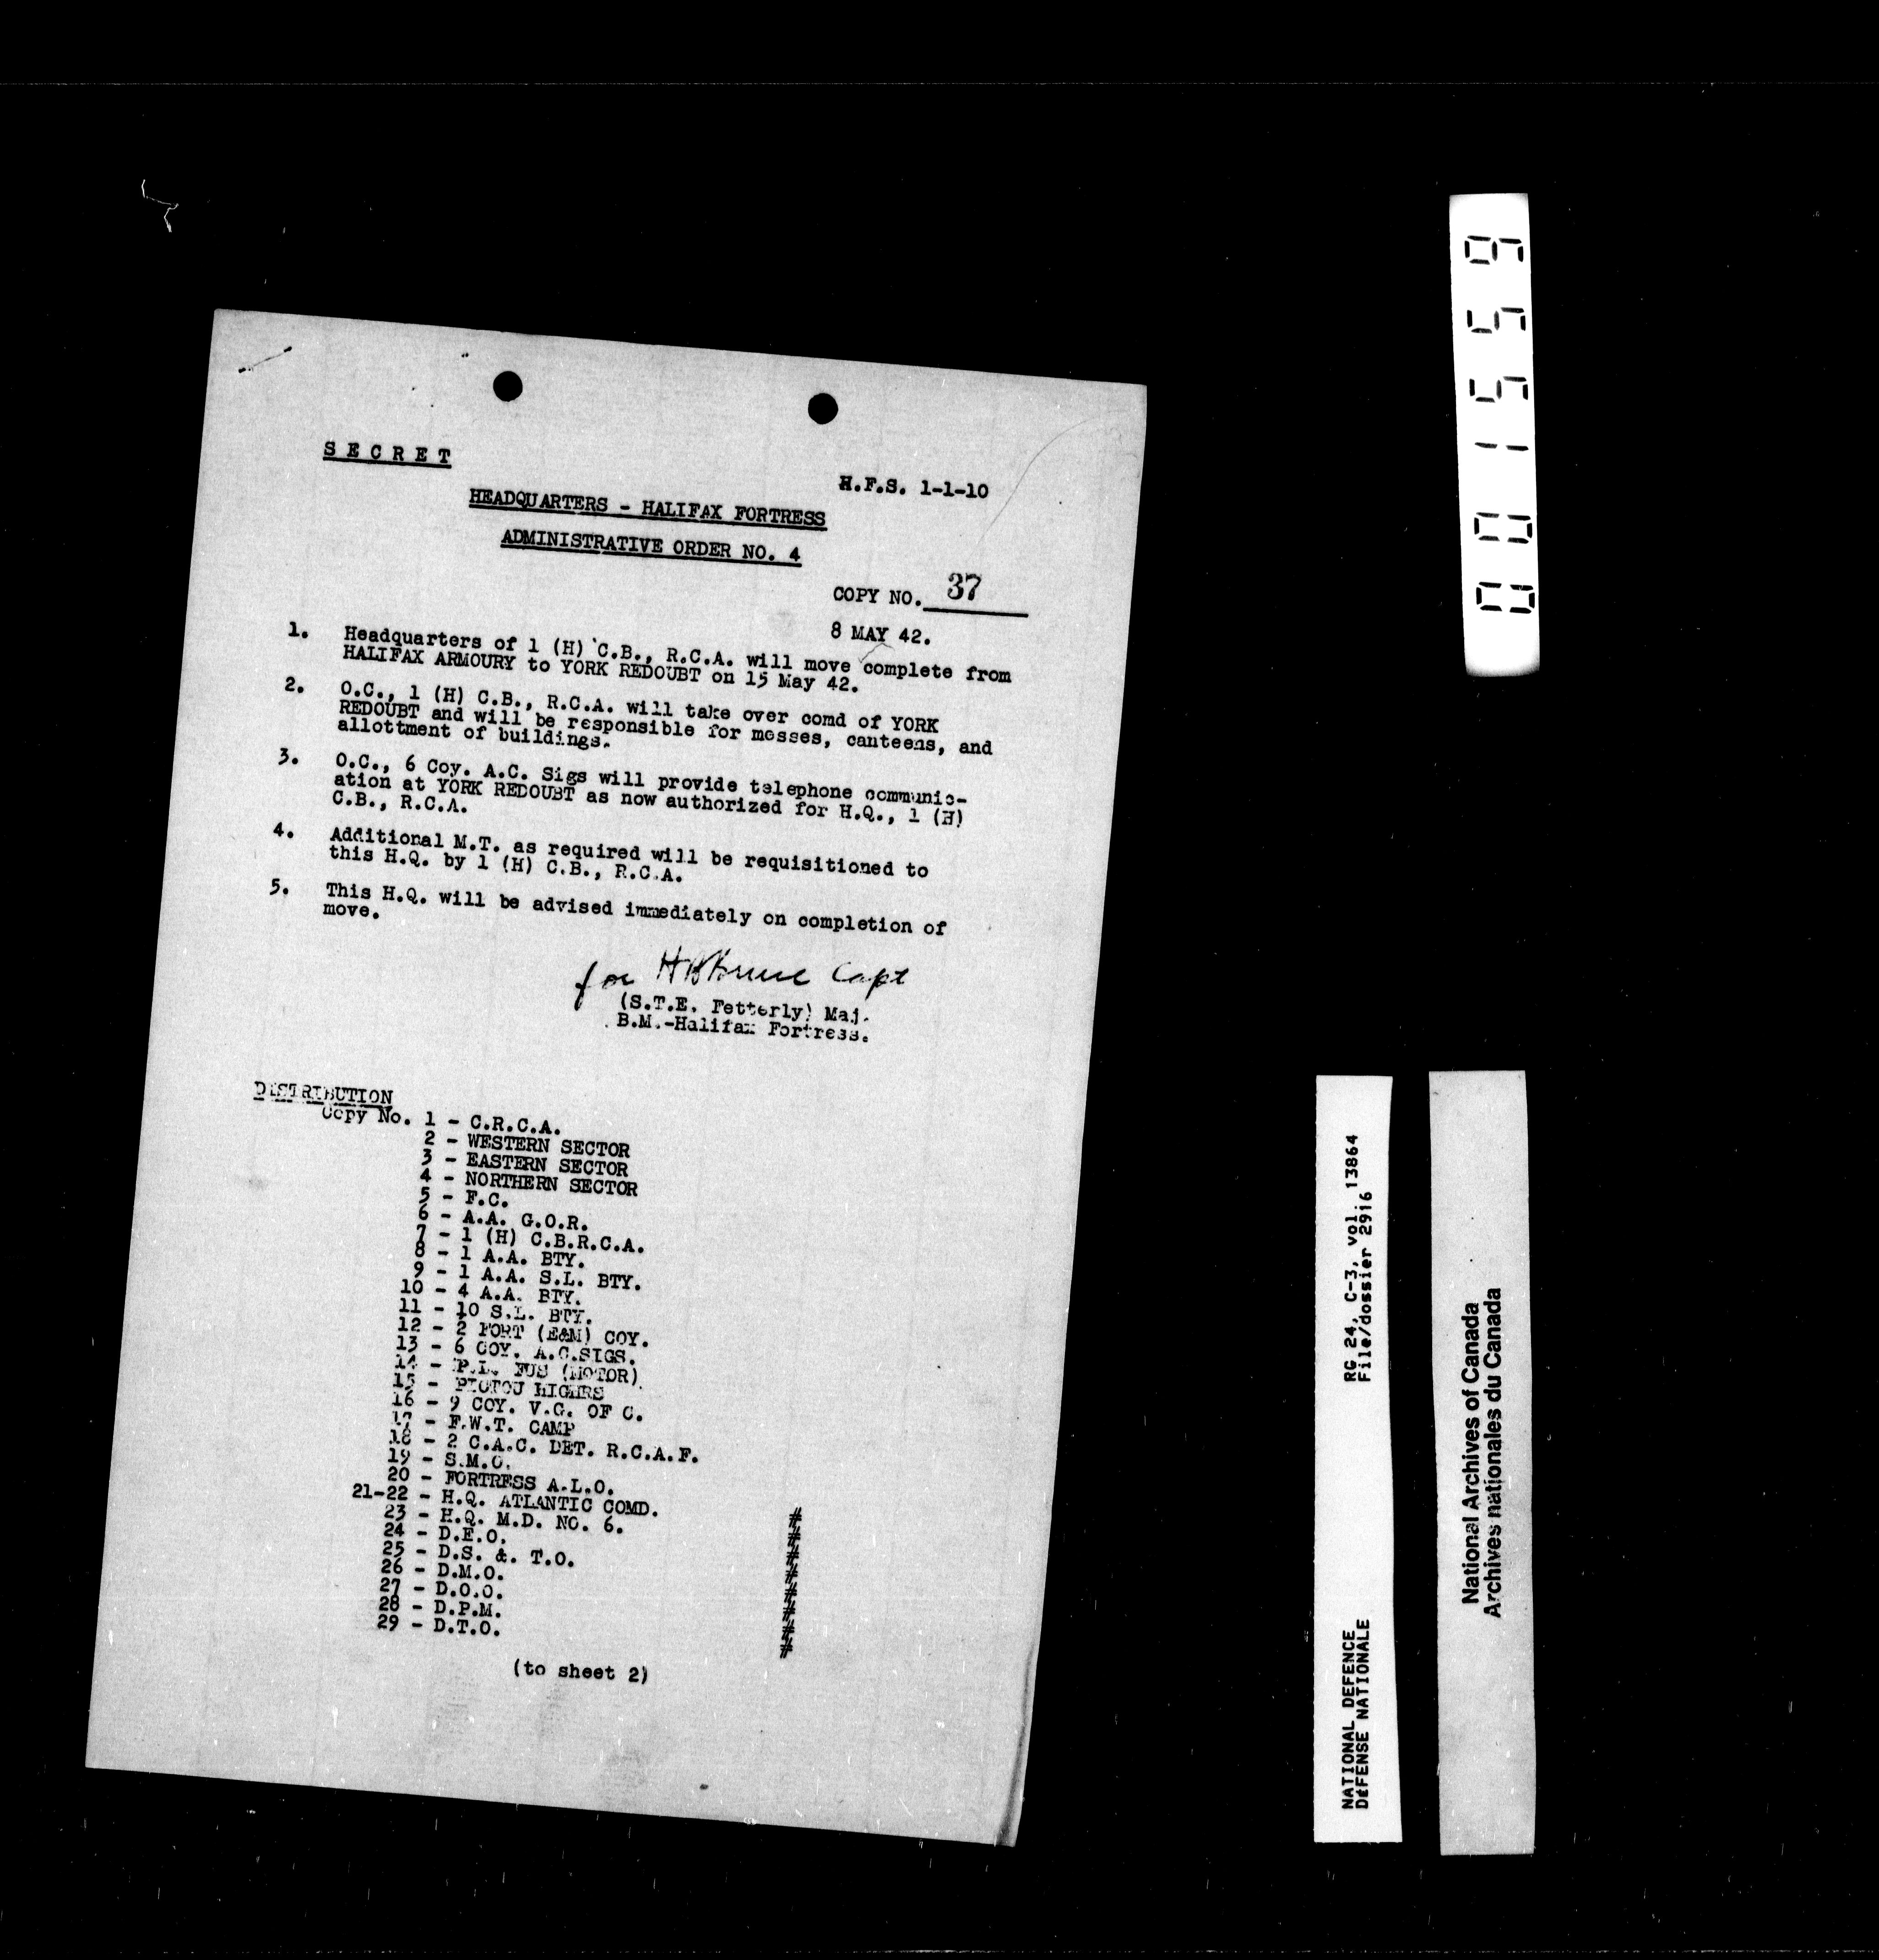 S E C R E T
H.F.S. 1-1-10
HEADQUARTERS - HALIFAX FORTRESS
ADMINISTRATIVE ORDER NO. 4
COPY NO. 37
8 MAY 42.
1. Headquarters of 1 (H) C.B., R.C.A. will move complete from
HALIFAX ARMOURY to YORK REDOUBT on 15 May 42.
2. O.C., 1 (H) C.B., R.C.A. will take over comd of YORK
REDOUBT and will be responsible for messes, canteens, and
allottment of buildings.
3. O.C., 6 Coy. A.C. Sigs will provide telephone communic-
ation at YORK REDOUBT as now authorized for H.Q., 1 (H)
C.B., R.C.A.
4. Additional M.T. as required will be requisitioned to
this H.Q. by 1 (H) C.B., R.C.A.
5. This H.Q. will be advised immediately on completion of
move.
for Capt
(S.T.E. Fetterly) Maj.
B.M.-Halifax Fortress.
DISTRIBUTION
Copy No. 1 - C.R.C.A.
2 - WESTERN SECTOR
3 - EASTERN SECTOR
4 - NORTHERN SECTOR
5 - F.C.
6 - A.A. G.O.R.
7 - 1 (H) C.B.R.C.A.
8 - 1 A.A. BTY.
9 - 1 A.A. S.L. BTY.
10 - 4 A.A. BTY.
11 - 10 S.L. BTY.
12 - 2 FORT (E&M) COY.
13 - 6 COY. A.C.SIGS.
14 - P.L. FUS (MOTOR)
15 - PICTOU HIGHRS
16 - 9 COY. V.G. OF C.
17 - F.W.T. CAMP
18 - 2 C.A.C. DET. R.C.A.F.
19 - S.M.O.
20 - FORTRESS A.L.O.
21-22 - H.Q. ATLANTIC COMD. #
23 - H.Q. M.D. NO. 6. #
24 - D.E.O. #
25 - D.S. &. T.O. #
26 - D.M.O. #
27 - D.O.O. #
28 - D.P.M. #
29 - D.T.O. #
(to sheet 2)
001559
RG 24, C-3, vol. 13864
File/dossier 2916
NATIONAL DEFENCE
DéFENSE NATIONALE
National Archives of Canada
Archives nationales du Canada